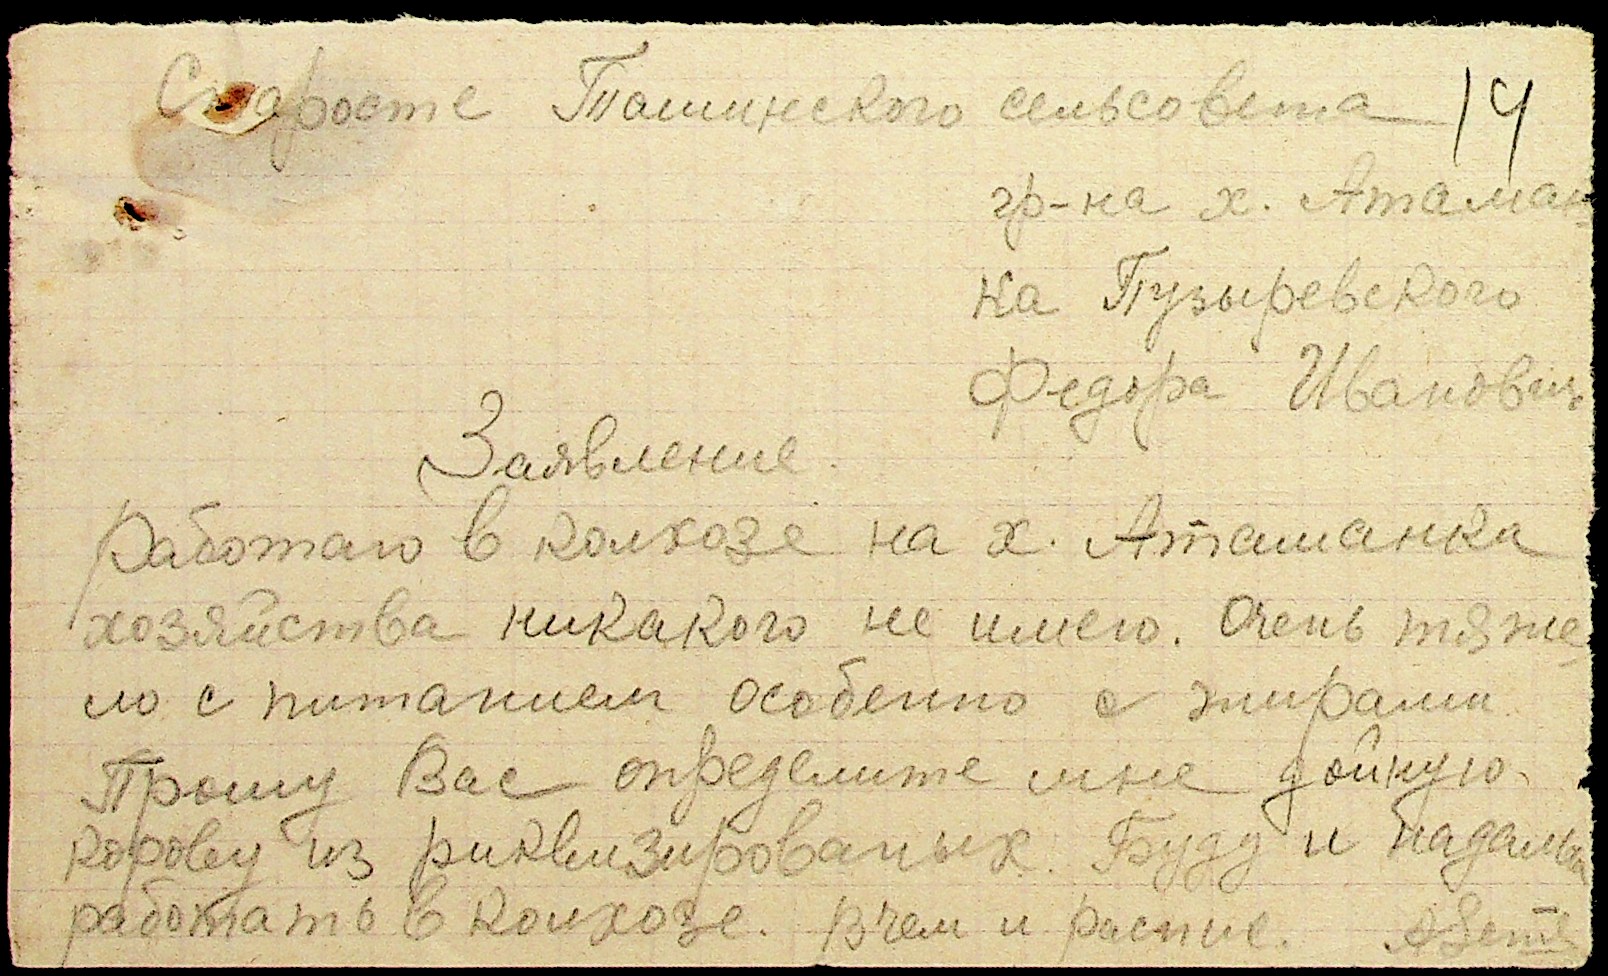 Старосте Ташинского сельсовета 14
гр-на х. Атаман-
ка Пузыревского
Федора Иванович
Заявление.
Работаю в колхозе на х. Атаманка
хозяйства никакого не имею. Очень тяже-
ло с питанием особенно с жирами
Прошу Вас определите мне дойную
корову из риквизированых. Буду и надальш
работать в колхозе. В чем и роспис.